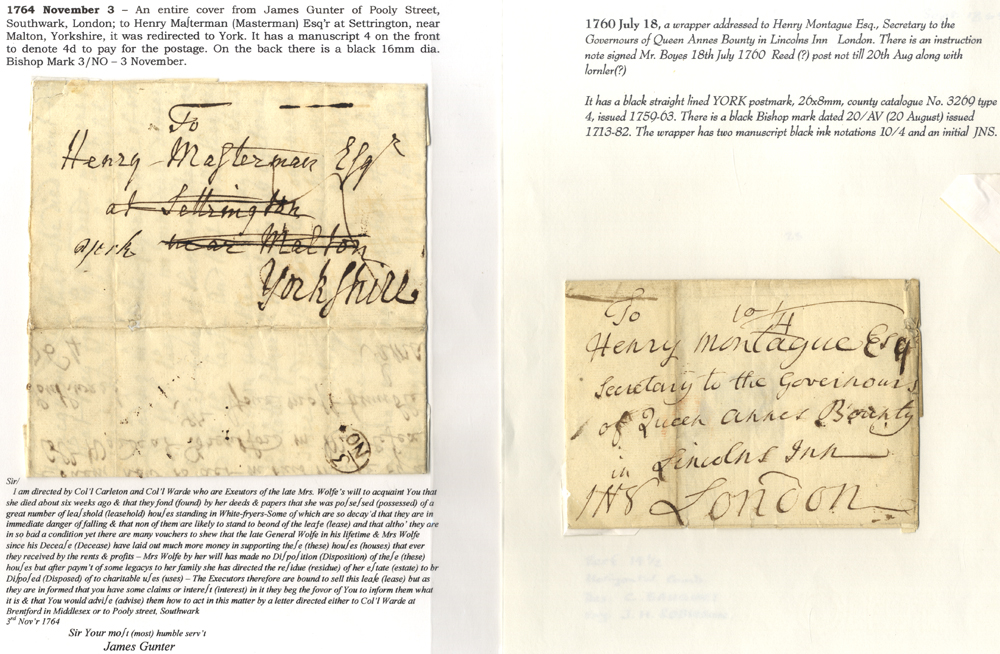 1764 November 3 – An entire cover from James Gunter of Pooly Street,
Southwark, London; to Henry Maſterman (Masterman) Esq'r at Settrington, near
Malton, Yorkshire, it was redirected to York. It has a manuscript 4 on the front
to denote 4d to pay for the postage. On the back there is a black 16mm dia.
Bishop Mark 3/NO – 3 November.
To
Henry Maſterman Esqr
at Settrington
york near Malton
Yorkſhire
3 NO
Sir/
I am directed by Col'l Carleton and Col'l Warde who are Exeutors of the late Mrs. Wolfe's will to acquaint You that
she died about six weeks ago & that they fond (found) by her deeds & papers that she was poſseſsed (possessed) of a
great number of leaſshold (leasehold) houſes standing in White-fryers-Some of which are so decay'd that they are in
immediate danger of falling & that non of them are likely to stand to beond of the leaſe (lease) and that altho' they are
in so bad a condition yet there are many vouchers to shew that the late General Wolfe in his lifetime & Mrs Wolfe
since his Deceaſe (Decease) have laid out much more money in supporting theſe (these) houſes (houses) that ever
they received by the rents & profits – Mrs Wolfe by her will has made no Diſpoſition (Disposition) of theſe (these)
houſes but after paym't of some legacys to her family she has directed the reſidue (residue) of her eſtate (estate) to br
Diſpoſed (Disposed) of to charitable uſes (uses) – The Executors therefore are bound to sell this leaſe (lease) but as
they are in informed that you have some claims or intereſt (interest) in it they beg the favor of You to inform them what
it is & that You would adviſe (advise) them how to act in this matter by a letter directed either to Col'l Warde at
Brentford in Middlesex or to Pooly street, Southwark
3rd Nov'r 1764
Sir Your moſt (most) humble serv't
James Gunter
1760 July 18, a wrapper addressed to Henry Montague Esq., Secretary to the
Governours of Queen Annes Bounty in Lincolns Inn London. There is an instruction
note signed Mr. Boyes 18th July 1760 Reed (?) post not till 20th Aug along with
lornler(?)
It has a black straight lined YORK postmark, 26x8mm, county catalogue No. 3269 type
4, issued 1759-63. There is a black Bishop mark dated 20/AV (20 August) issued
1713-82. The wrapper has two manuscript black ink notations 10/4 and an initial JNS.
To 10/4
Henry Montague Esq
Secretary to the Governours
of Queen Annes Bounty
in Lincolns Inn
London